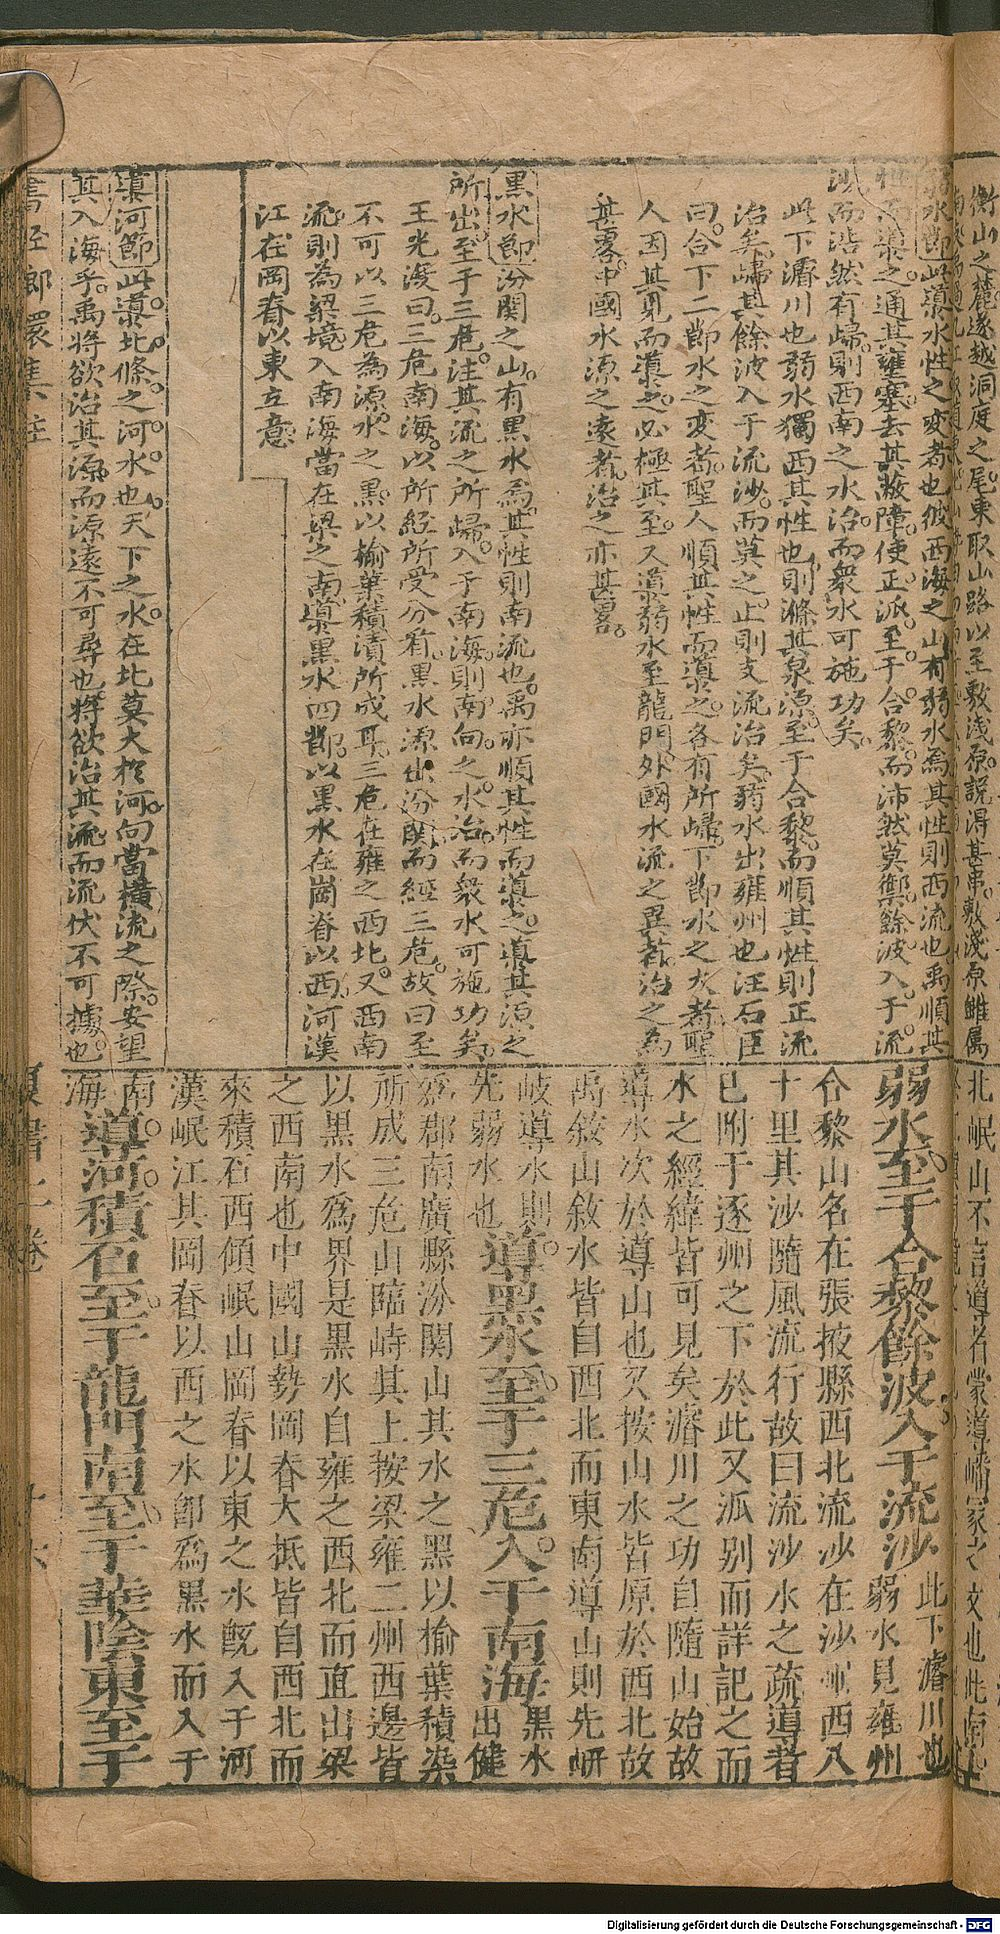 衡山之麓遂越洞庭之尾東取山路以至敷淺原說得甚串敷淺原雖屬
弱水節此導水性之変者也彼西海之山有弱水焉其性則西流也禹順其
而導之通其壅塞去其蔽障使正派至于合黎而沛然莫禦餘波入于流
沙而浩然有歸則西南之水治而衆水可施功矣
此下濬川也弱水獨西其性也則滌其泉源至于合黎而順其性則正流
治矣歸其餘波入于流沙而莫之止則支流治矣弱水出雍州也汪石臣
曰合下二節水之変者聖人順其性而導之各有所歸下節水之大者聖
人因其見而導之必極其至又導弱水至龍門外國水流之異者治之為
甚畧中國水源之遠者治之亦甚畧
黑水節汾関之山有黑水焉其性則南流也禹亦順其性而導之導其源之
所出至于三危注其流之所歸入于南海則南向之水治而衆水可施功矣
王光漫曰三危南海以所經所受分看黑水源出汾関而經三危故曰至
不可以三危為源水之黑以榆葉積漬所成耳三危在雍之西北又西南
流則為梁境入南海當在梁之南導黑水四節以黑水在崗脊以西河漢
江在岡脊以東立意
導河節此導北條之河水也天下之水在北莫大於河向當橫流之際安望
其入海乎禹將欲治其源而源遠不可尋也將欲治其流而流伏不可據也
北岷山不言導者蒙導嶓冢之文也此南
弱水至于合黎餘波入于流沙此下濬川也
弱水見雍州
合黎山名在張掖縣西北流沙在沙州西八
十里其沙隨風流行故曰流沙水之疏導者
已附于逐州之下於此又派别而詳記之而
水之經緯皆可見矣濬川之功自隨山始故
導水次於導山也又按山水皆原於西北故
禹敘山敘水皆自西北而東南導山則先岍
岐導水則
先弱水也
導黑水至于三危入于南海黑水
出犍
爲郡南廣縣汾関山其水之黑以榆葉積染
所成三危山臨峙其上按梁雍二州西邊皆
以黑水爲界是黑水自雍之西北而直出梁
之西南也中國山勢岡脊大抵皆自西北而
來積石西傾岷山岡脊以東之水旣入于河
漢岷江其岡脊以西之水卽爲黑水而入于
南
海
導河積石至于龍門南至于華陰東至于
書經郎嬛集註
夏書二卷
Digitalisierung gefördert durch die Deutsche Forschungsgemeinschaft - DFG